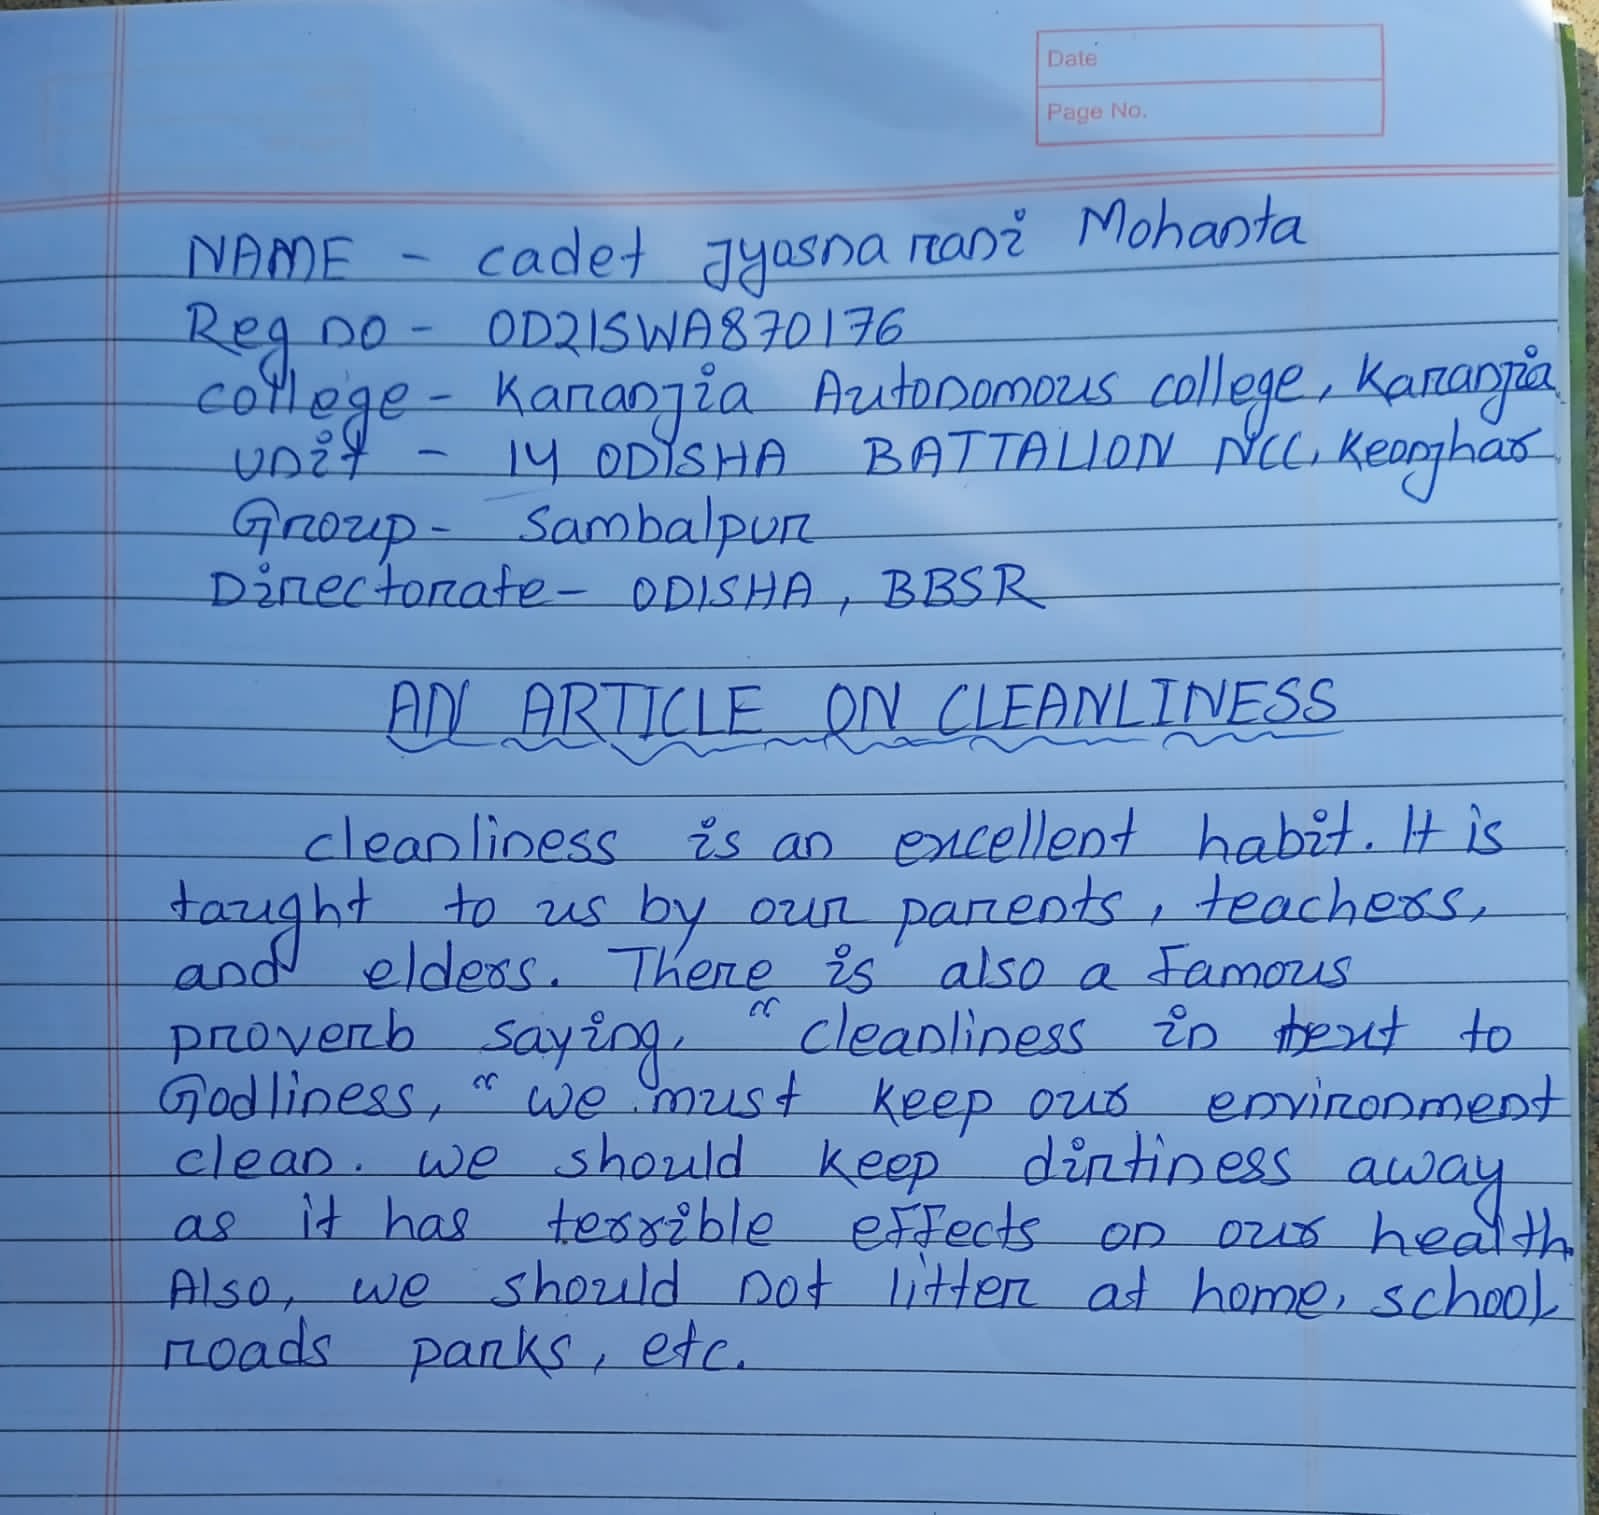 Date
Page No.
NAME - cadet Jyosna rani Mohanta
Reg no - OD21SWA870176
college - Karanjia Autonomous college, Karanjia
unit - 14 ODISHA BATTALION NCC, Keonjhar
Group - Sambalpur
Directorate - ODISHA, BBSR
AN ARTICLE ON CLEANLINESS
cleanliness is an excellent habit. It is
taught to us by our parents, teachers,
and elders. There is also a famous
proverb saying, " cleanliness in text to
Godliness, " we must keep our environment
clean. we should keep dirtiness away
as it has terrible effects on our health.
Also, we should not litter at home, school,
roads parks, etc.